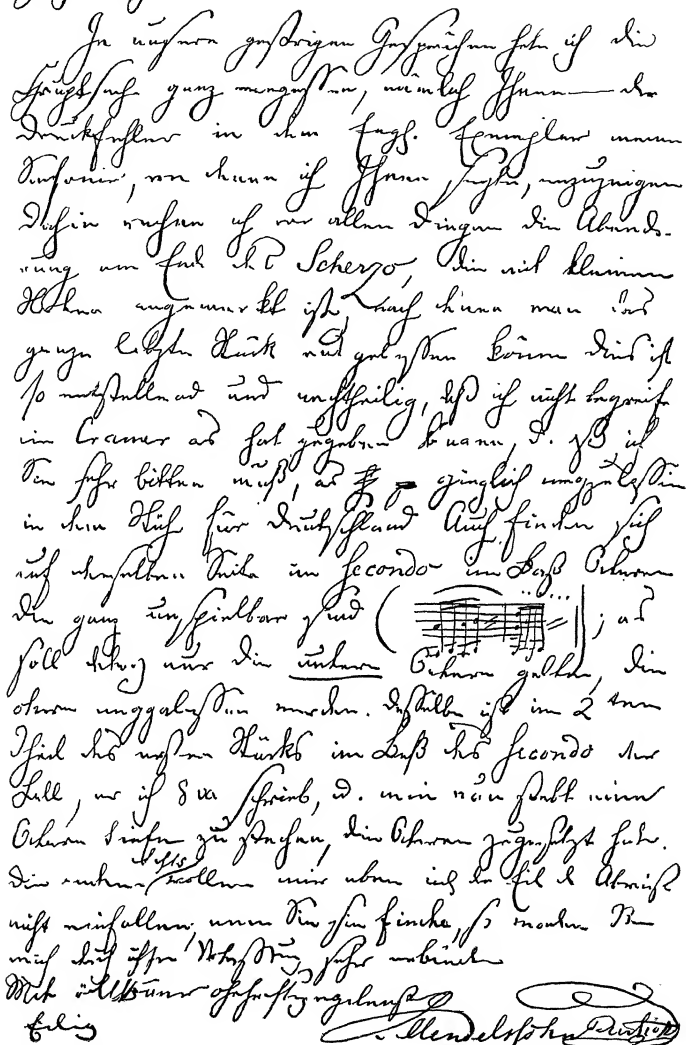 In unsern gestrigen Gesprächen habe ich die
Hauptsache ganz vergessen, nämlich Ihnen — die
Druckfehler in dem Engl. Exemplar meiner
Sinfonie, von denen ich Ihnen sagte, anzuzeigen
Dahin rechne ich vor allen Dingen die Abände-
rung am Ende des Scherzo, die mit kleinen
Noten angemerkt ist, nach denen man das
ganze letzte Stück können dies ist
so entstellend und nachtheilig, daß ich nicht begreife
wie Cramer es hat gegeben können, u. daß ich
Sie sehr bitten muß, es gänzlich wegzulassen
in dem Stich für Deutschland Auch finden sich
auf derselben Seite im Secondo im Baß Octaven
die ganz unspielbar sind ( ) ; es
soll nur die untern Octaven gelten, die
obern weggelassen werden. Dasselbe ist im 2 ten
Theil des ersten Stücks im Baß des Secondo der
Fall, wo ich 8va schrieb, u. man nun statt eine
Octave tiefer zu stechen, die Octaven zugesetzt hat.
Die andern wollen mir eben in der Eil d Abreise
nicht einfallen, wenn Sie sie finden, so werden Sie
mich durch sehr verbinden
Mit
Eilig Mendelssohn Bartholdy